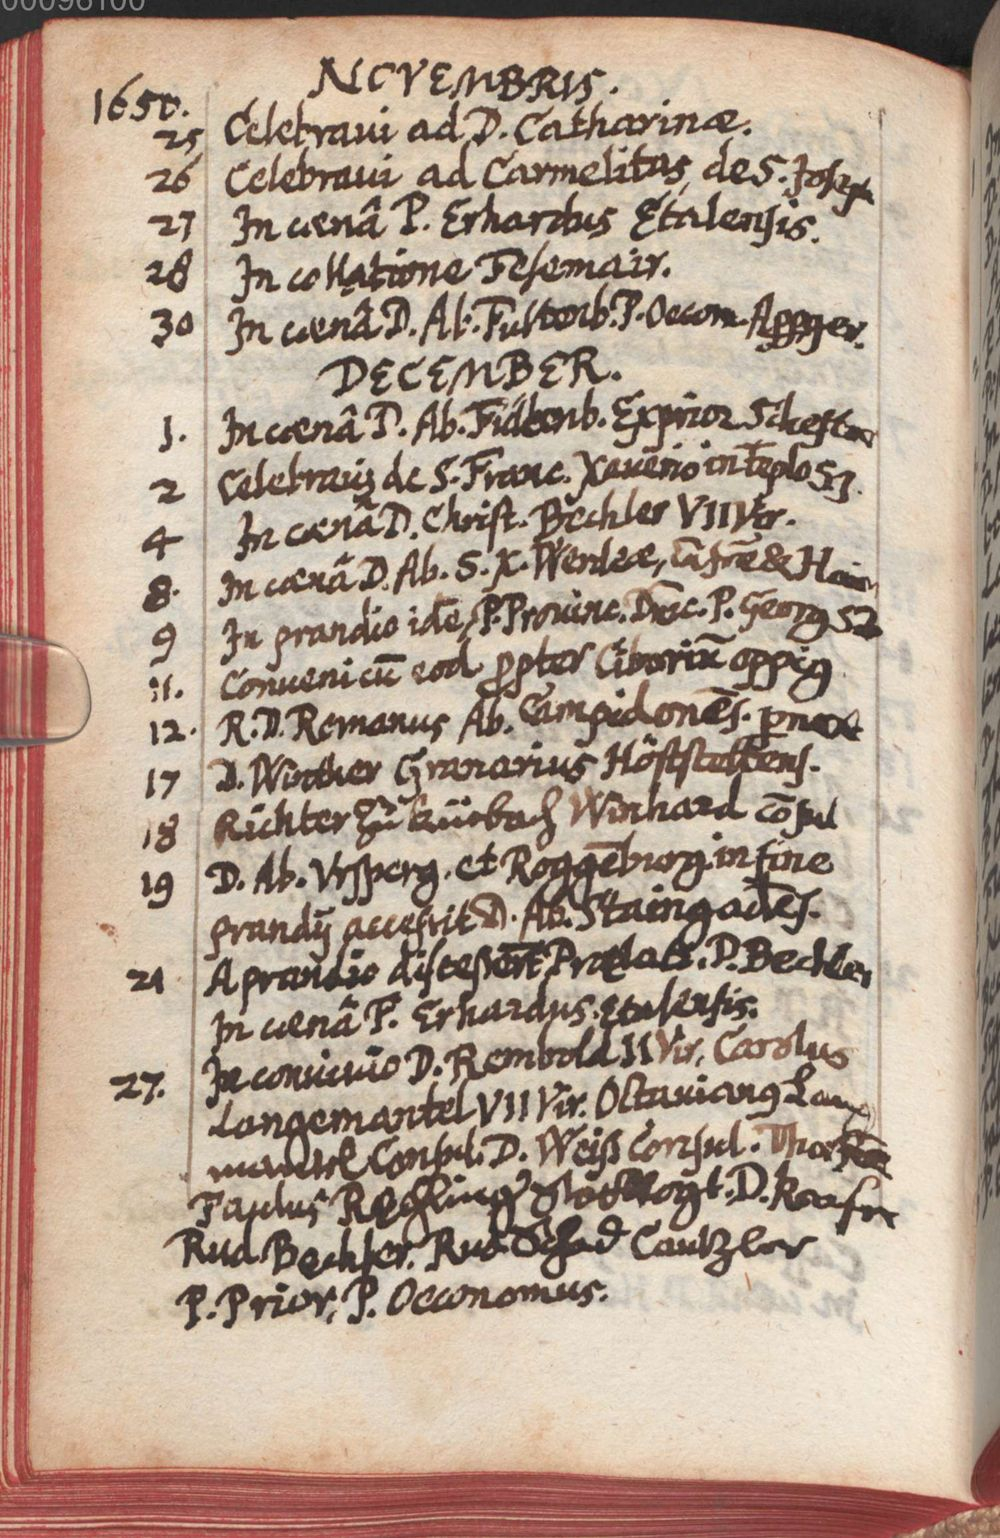 00096100
NOVEMBRIS.
1650.
25 Celebraui ad D. Catharinæ.
26 Celebraui ad Carmelitas de S. Joseph
27 In cœnâ P. Erhardus Etalensis.
28 In collatione Fesemair.
30 In cœnâ D. Ab. Fultenb. P. Oecom.
DECEMBER.
1. In cœnâ D. Ab. Exprior
2 Celebrauj de S. Franc. Xauerio in tẽplo SJ.
4 In cœnâ D. Christ. Bechler VII Vir.
8. In cœnâ D. Ab. S. X. Werdeæ,
9 In prandio idẽ, P. Prouinc. P. Georg
11. Conueni cũ eod ppter Ciboriũ
12. R. D. Romanus Ab. Campidonẽs.
17 D. Winther Granarius Höstsettens.
18 Richter zu Winhard cõsul
19 D. Ab. Vrsperg. et Roggẽburg. in fine
prandij accessit D. Ab. Staingadẽs.
21 A prandio Prælati. D. Bechler
In cœnâ P. Erhardus Etalensis.
27. In conuiuio D. Rembold II Vir, Carolus
Langemantel VII Vir. Octauianus Lang
mantel Consul. D. Weiß Consul.
Paulus D.
Rud. Bechler. Rud. Schad Cantzler
P. Prior, P. Oeconomus.